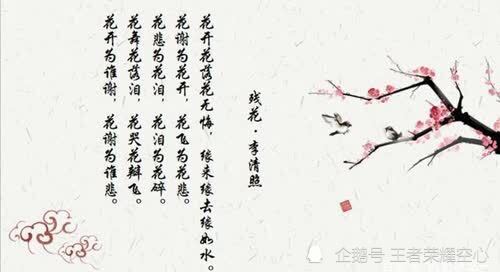 残花·李清照
花开花落花无悔，缘来缘去缘如水。
花谢为花开，花飞为花悲。
花悲为花泪，花泪为花碎。
花舞花落泪，花哭花瓣飞。
花开为谁谢，花谢为谁悲。
企鹅号 王者荣耀空心